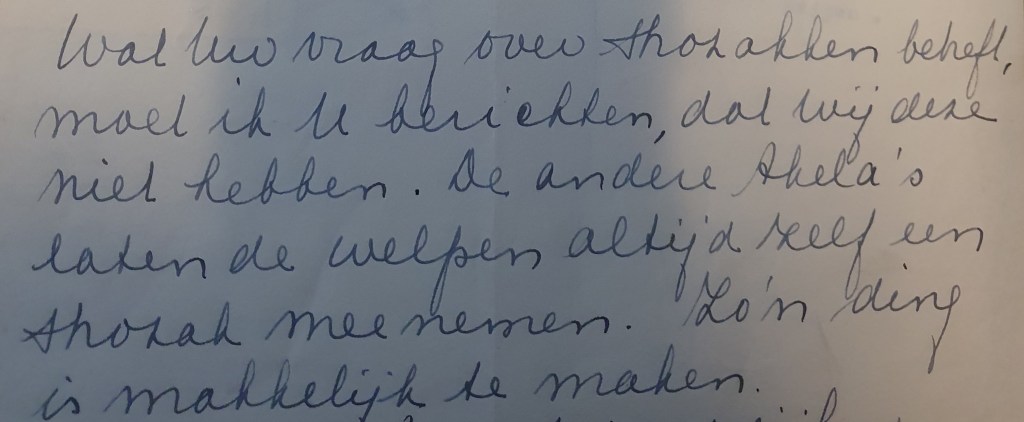 Wat Uw vraag over strozakken betreft,
moet ik U berichten, dat wij deze
niet hebben. De andere Akela's
laten de welpen altijd zelf een
strozak meenemen. Zo'n ding
is makkelijk te maken.